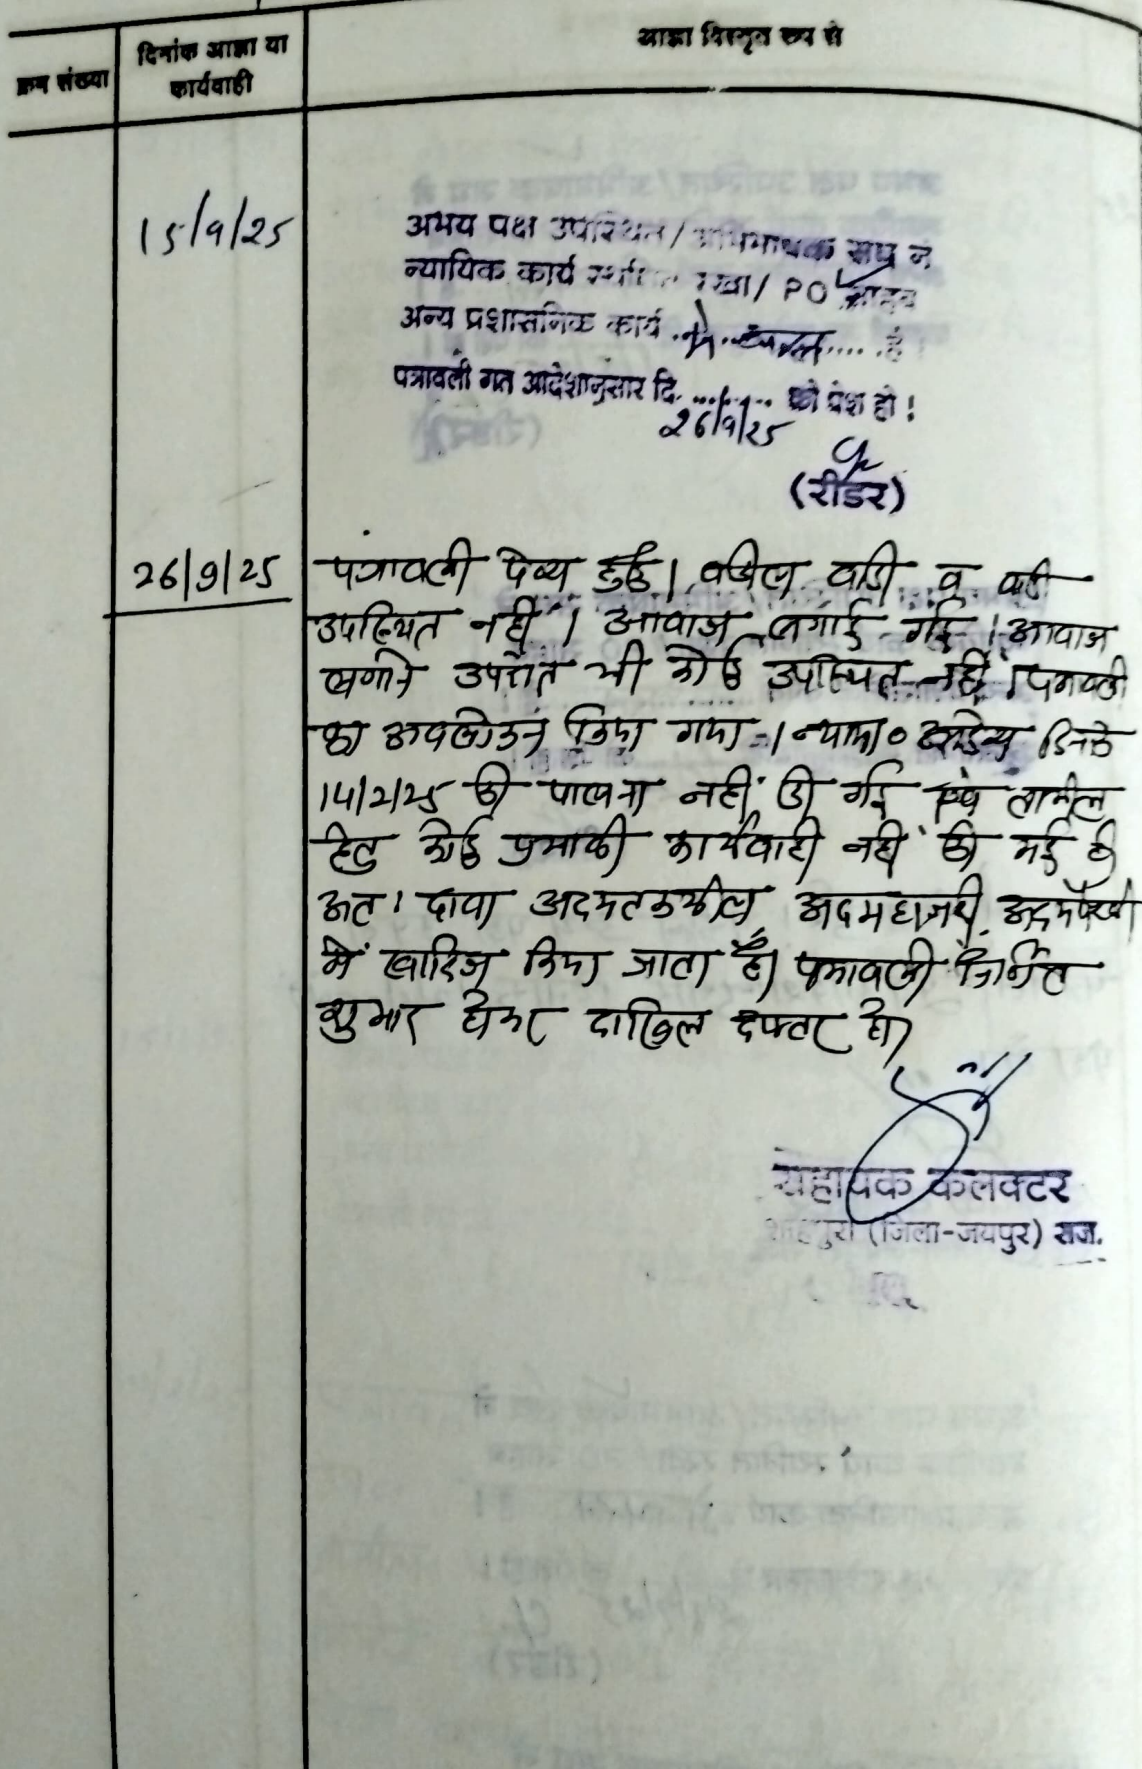 क्रम संख्या
दिनांक आज्ञा या
कार्यवाही
आज्ञा विस्तृत रूप से
15/9/25
अभय पक्ष उपस्थित/अभिभाषक संघ ने
न्यायिक कार्य स्थगित रखा/ PO साहब
अन्य प्रशासनिक कार्य में व्यस्त है।
पत्रावली गत आदेशानुसार दि. 26/9/25 को पेश हो !
(रीडर)
26/9/25
पत्रावली पेश हुई। वकील वादी व वादी
उपस्थित नहीं। आवाज लगाई गई। आवाज
लगाने उपरांत भी कोई उपस्थित नहीं। पत्रावली
का अवलोकन किया गया। न्याया०
14/2/25 की पालना नहीं की गई एवं तामील
हेतु कोई प्रभावी कार्यवाही नहीं की गई है
अतः दावा अदमतकमील, अदमहाजरी, अदमपैरवी
में खारिज किया जाता है। पत्रावली निर्णित
शुमार होकर दाखिल दफ्तर हो।
सहायक कलक्टर
शाहपुरा (जिला-जयपुर) राज.